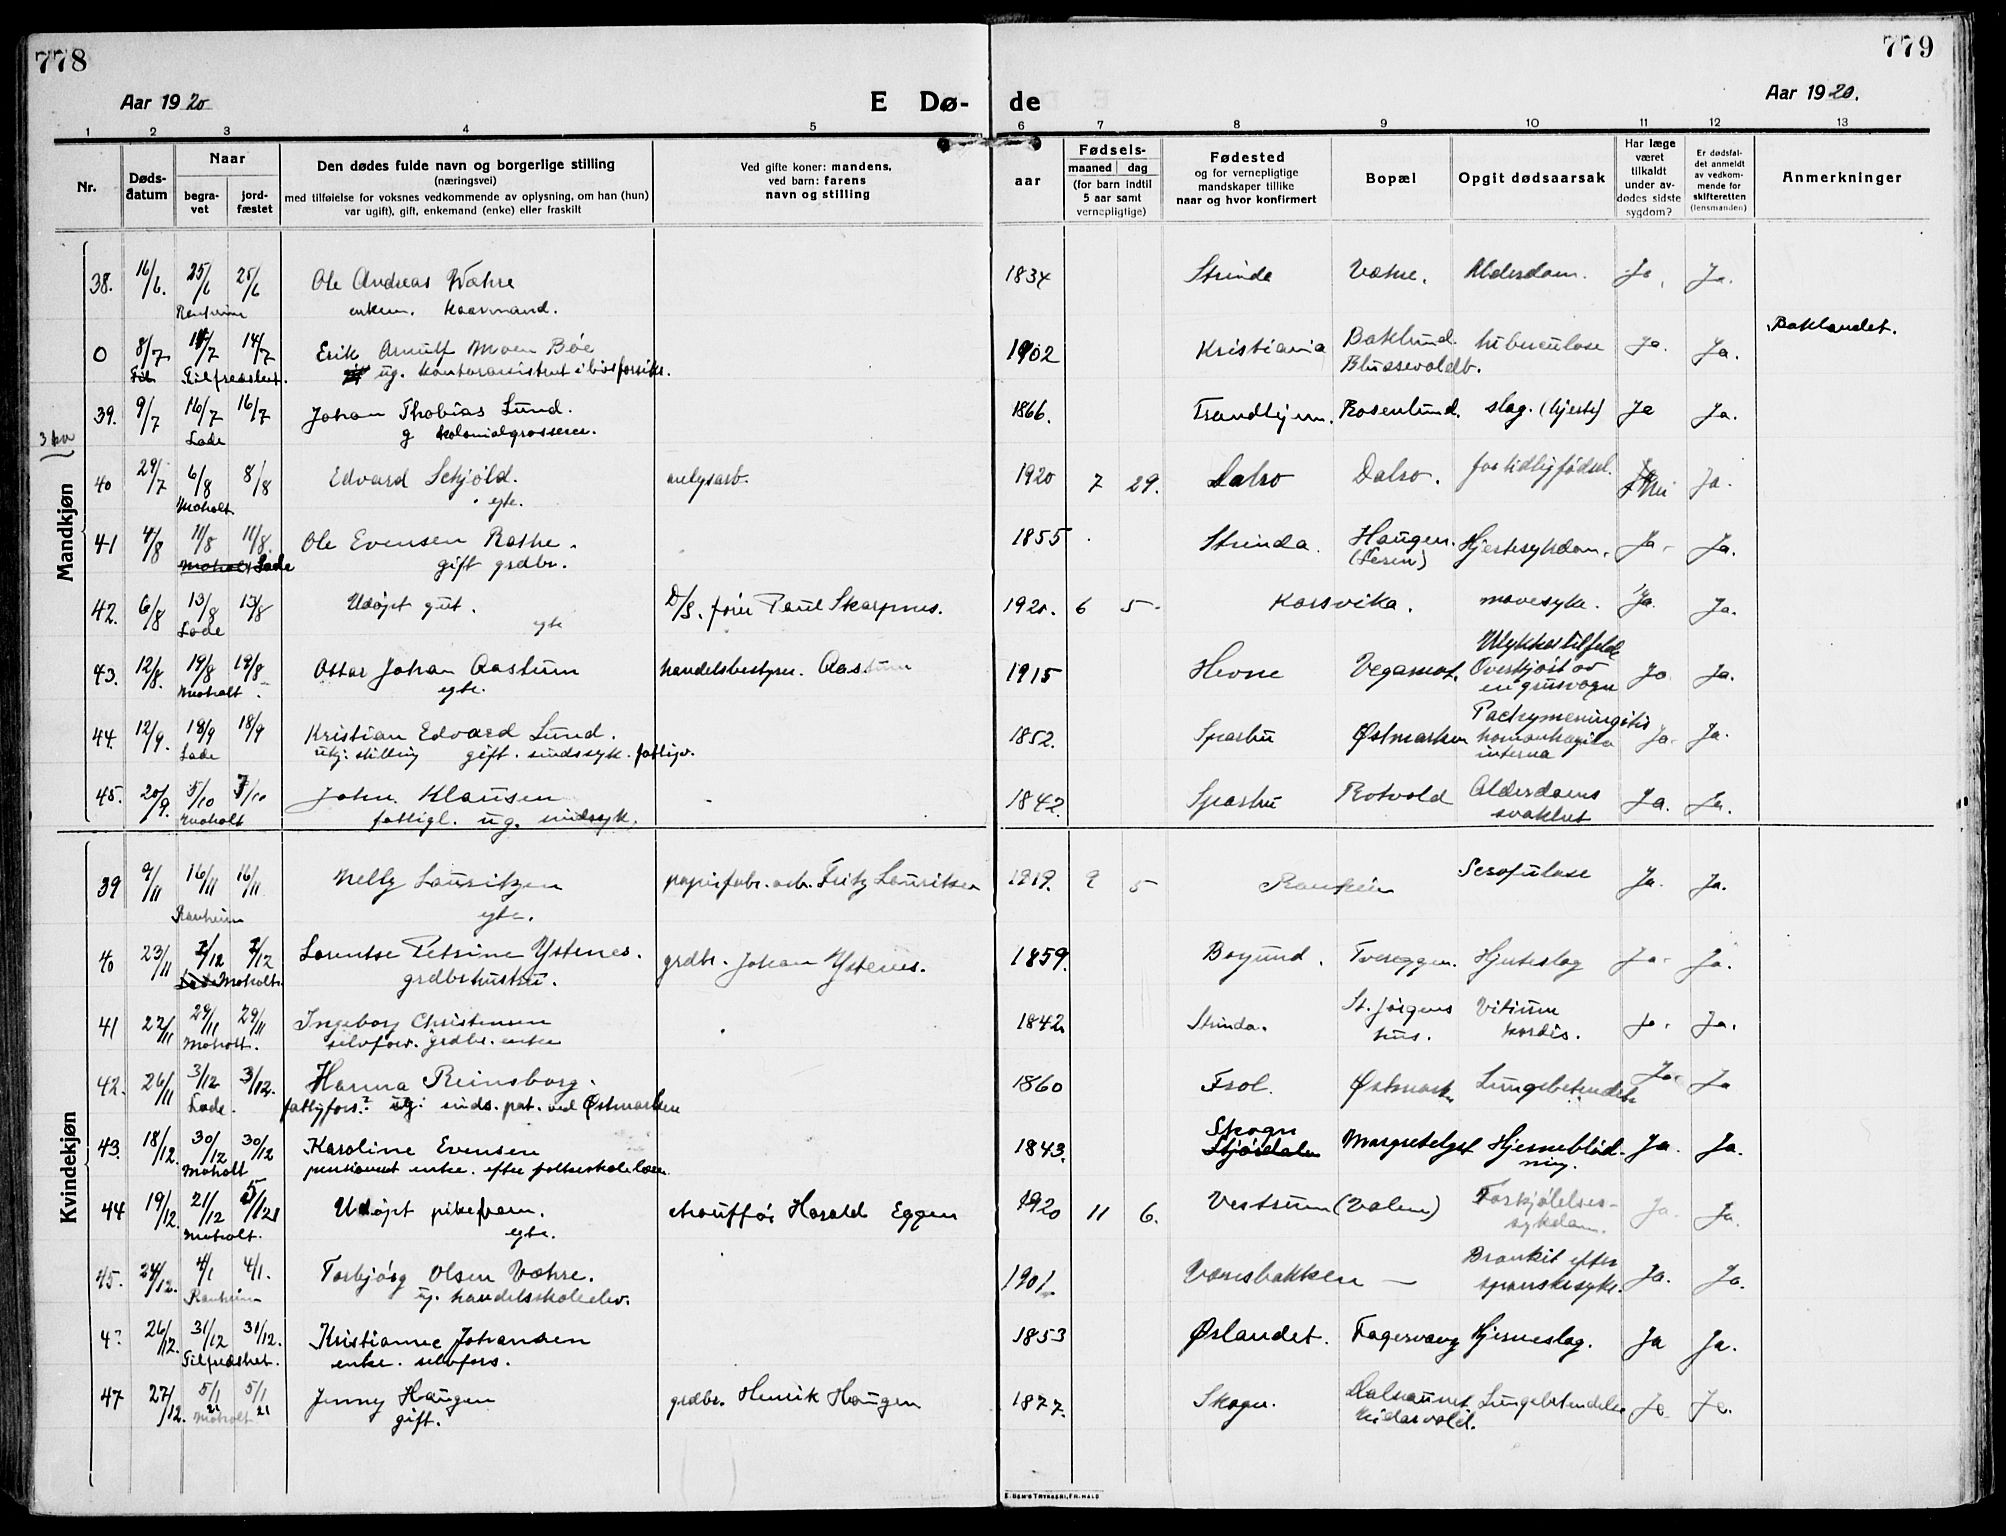 778
779
Aar 1920
E Dø-
de
Aar 1920.
1 2 3 4 5 6 7 8 9 10 11 12 13
Nr.
Døds-
datum
Naar
begra-
vet
jord-
fæstet
Den dødes fulde navn og borgerlige stilling
(næringsvei)
med tilføielse for voksnes vedkommende av oplysning, om han (hun)
var ugift), gift, enkemand (enke) eller fraskilt
Ved gifte koner: mandens,
ved barn: farens
navn og stilling
Fødsels-
aar
maaned dag
(for barn indtil
5 aar samt
vernepligtige)
Fødested
og for vernepligtige
mandskaper tillike
naar og hvor konfirmert
Bopæl
Opgit dødsaarsak
Har læge
været
tilkaldt
under av-
dødes sidste
sygdom?
Er dødsfal-
det anmeldt
av vedkom-
mende for
skifteretten
(lensmanden)
Anmerkninger
Mandkjøn
38. 16/6. 25/6 25/6 Ole Andreas Væhre 1834 Strinda Væhre. Alderdom. Ja. Ja.
Ranheim enkem. kaarmand.
Baklandet.
0 8/7 14/7 14/7 Erik Arnulf Moen Bøe 1902 Kristiania Baklund. tuberculose Ja. Ja.
Tilfredshet. ug. kontorassistent i livsforsikr. Blussevoldb.
39. 9/7 16/7 16/7 Johan Thobias Lund. 1866. Trondhjem. Rosenlund. slag. (hjerte) Ja Ja.
Lade g kolonialgrosserer.
40 29/7 6/8 8/8 Edvard Schjöld. anlegsarb. 1920 7 29. Dalso Dalso. for tidlig fødsel. Nei Ja.
Moholt egte.
41 4/8 11/8 11/8. Ole Evensen Rathe. 1855 Strinda. Haugen. Hjertesykdom. Ja. Ja.
Moholt Lade gift grdbr. (Leren)
42. 6/8 13/8 13/8 Udøpt gut. D/S. fører Paul Skarpnes. 1920. 6 5. Korsvika. mavesyke. Ja. Ja.
Lade egte
43. 12/8. 19/8 19/8 Ottar Johan Aastum handelsbestyrer Aastum 1915 Hevne Vegamot. Ulykkestilfelde Ja Ja.
Moholt. egte. Overkjørt av
en grusvogn
44. 12/9. 18/9 18/9 Kristian Edvard Lund. 1852. Sparbu Østmarken Pachymeningitis Ja. Ja.
Lade ukj. stilling gift. sindssyk. fattigv. interna
45. 20/9. 5/10 7/10 John Klausen 1842. Sparbu Rotvold Alderdoms Ja. Ja.
Moholt fattigl. ug. sindssyk. svakhet
Kvindekjøn
39 9/11 16/11 16/11 Nelly Lauritzen papirfabr. arb. Fritz Lauritzen 1919. 9 5 Ranheim Scrofulose Ja. Ja.
Ranheim egte.
40 23/11 2/12 2/12 Lorentse Petrine Ystenes. grdbr. Johan Ystenes. 1859. Borgund. Tveseggen. Hjerteslag Ja. Ja.
Moholt. grdbrhustru.
41 22/11 29/11 29/11 Ingeborg Christensen 1842 Strinda. St. Jørgens Vitium Ja. Ja.
Moholt. selvfors. grdbr. enke hus. kordis.
42. 26/11 3/12 3/12. Hanna Reinsborg. 1860 Frol. Østmark. Lungebetendelse Ja. Ja
Lade. fattigfors.? ug. sinds. pat. ved Østmarken
43. 18/12. 30/12 30/12 Karoline Evensen 1843. Skogn Margretelyst Hjerneblød- Ja. Ja.
Moholt pensioneret enke efter folkeskolelærer Stjørdalen ning.
44 19/12. 21/12 5/1 21 Udøpt pikebarn. chauffør Harald Eggen 1920 11 6. Vestrum (Valen) Forkjølelses- Ja. Ja.
Moholt. egte. sykdom.
45. 24/12. 4/1 4/1. Torbjørg Olsen Væhre. 1901. Væresbakken — Bronkit efter Ja. Ja.
Ranheim ug. handelsskoleelev. spanskesyke.
26/12. 31/12 31/12. Kristianne Johansen 1853 Ørlandet. Fagervang Hjerneslag. Ja Ja.
Tilfredshet. enke. selvfors.
47 27/12. 5/1 21 5/1 21 Jenny Haugen grdbr. Henrik Haugen 1877. Skogn. Dalhaunet Lungebetendelse Ja Ja.
Moholt gift. Nidarvold.